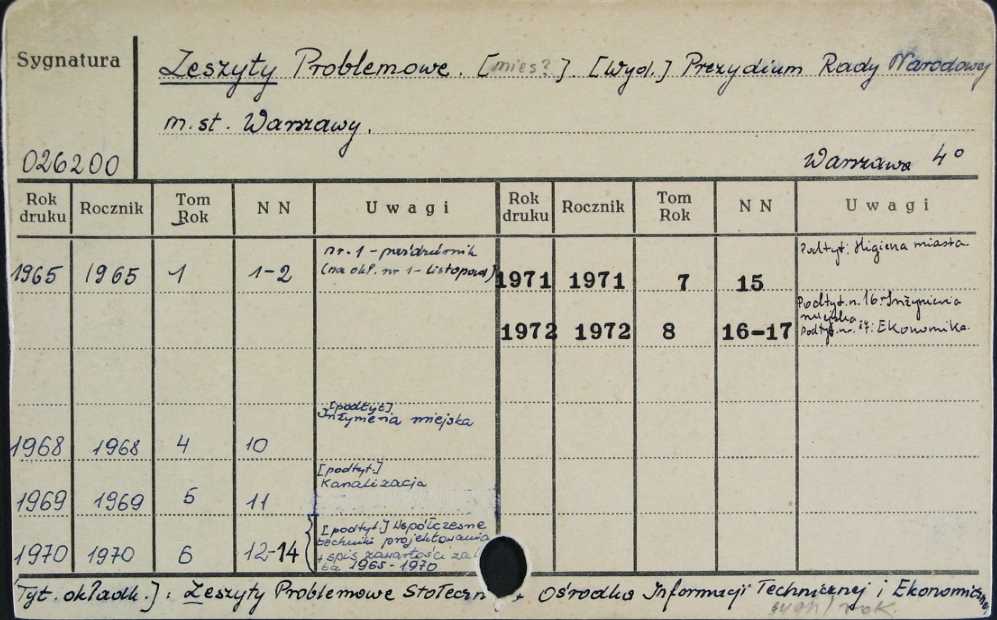 Sygnatura
Zeszyty Problemowe. [mies?] [Wyd.] Prezydium Rady Narodowej
m. st. Warszawy.
026200
Warszawa 4°
Rok druku Rocznik Tom Rok N N Uwagi Rok druku Rocznik Tom Rok N N Uwagi
nr. 1 - październik
(na okł. nr 1 - listopad)
1965 1965 1 1-2
Podtyt: Higiena miasta
1971 1971 7 15
Podtyt. n. 16: Inżynieria
miejska
Podtyt. nr. 17: Ekonomika
1972 1972 8 16-17
[podtyt]
Inżynieria miejska
1968 1968 4 10
[podtyt.]
Kanalizacja
1969 1969 5 11
[podtyt.] Współczesne
techniki projektowania
+ spis zawartości za
1965-1970
1970 1970 6 12-14
Tyt. okładk.] : Zeszyty Problemowe Ośrodka Informacji Technicznej i Ekonomicznej
rok.